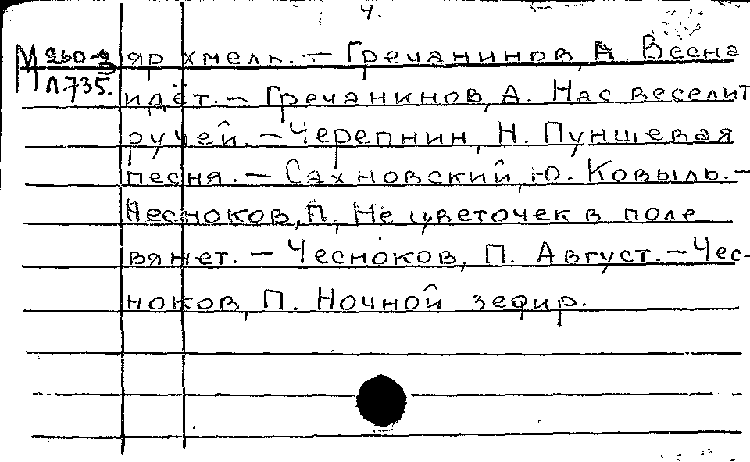 4.
М 260-3 яр хмель. – Гречанинов, А. Весна
Л735. идёт. – Гречанинов, А. Нас веселит
ручей. – Черепнин, Н. Пуншевая
песня. – Сахновский, Ю. Ковыль. –
Чесноков, П. Не цветочек в поле
вянет. – Чесноков, П. Август. – Чес-
ноков, П. Ночной зефир.